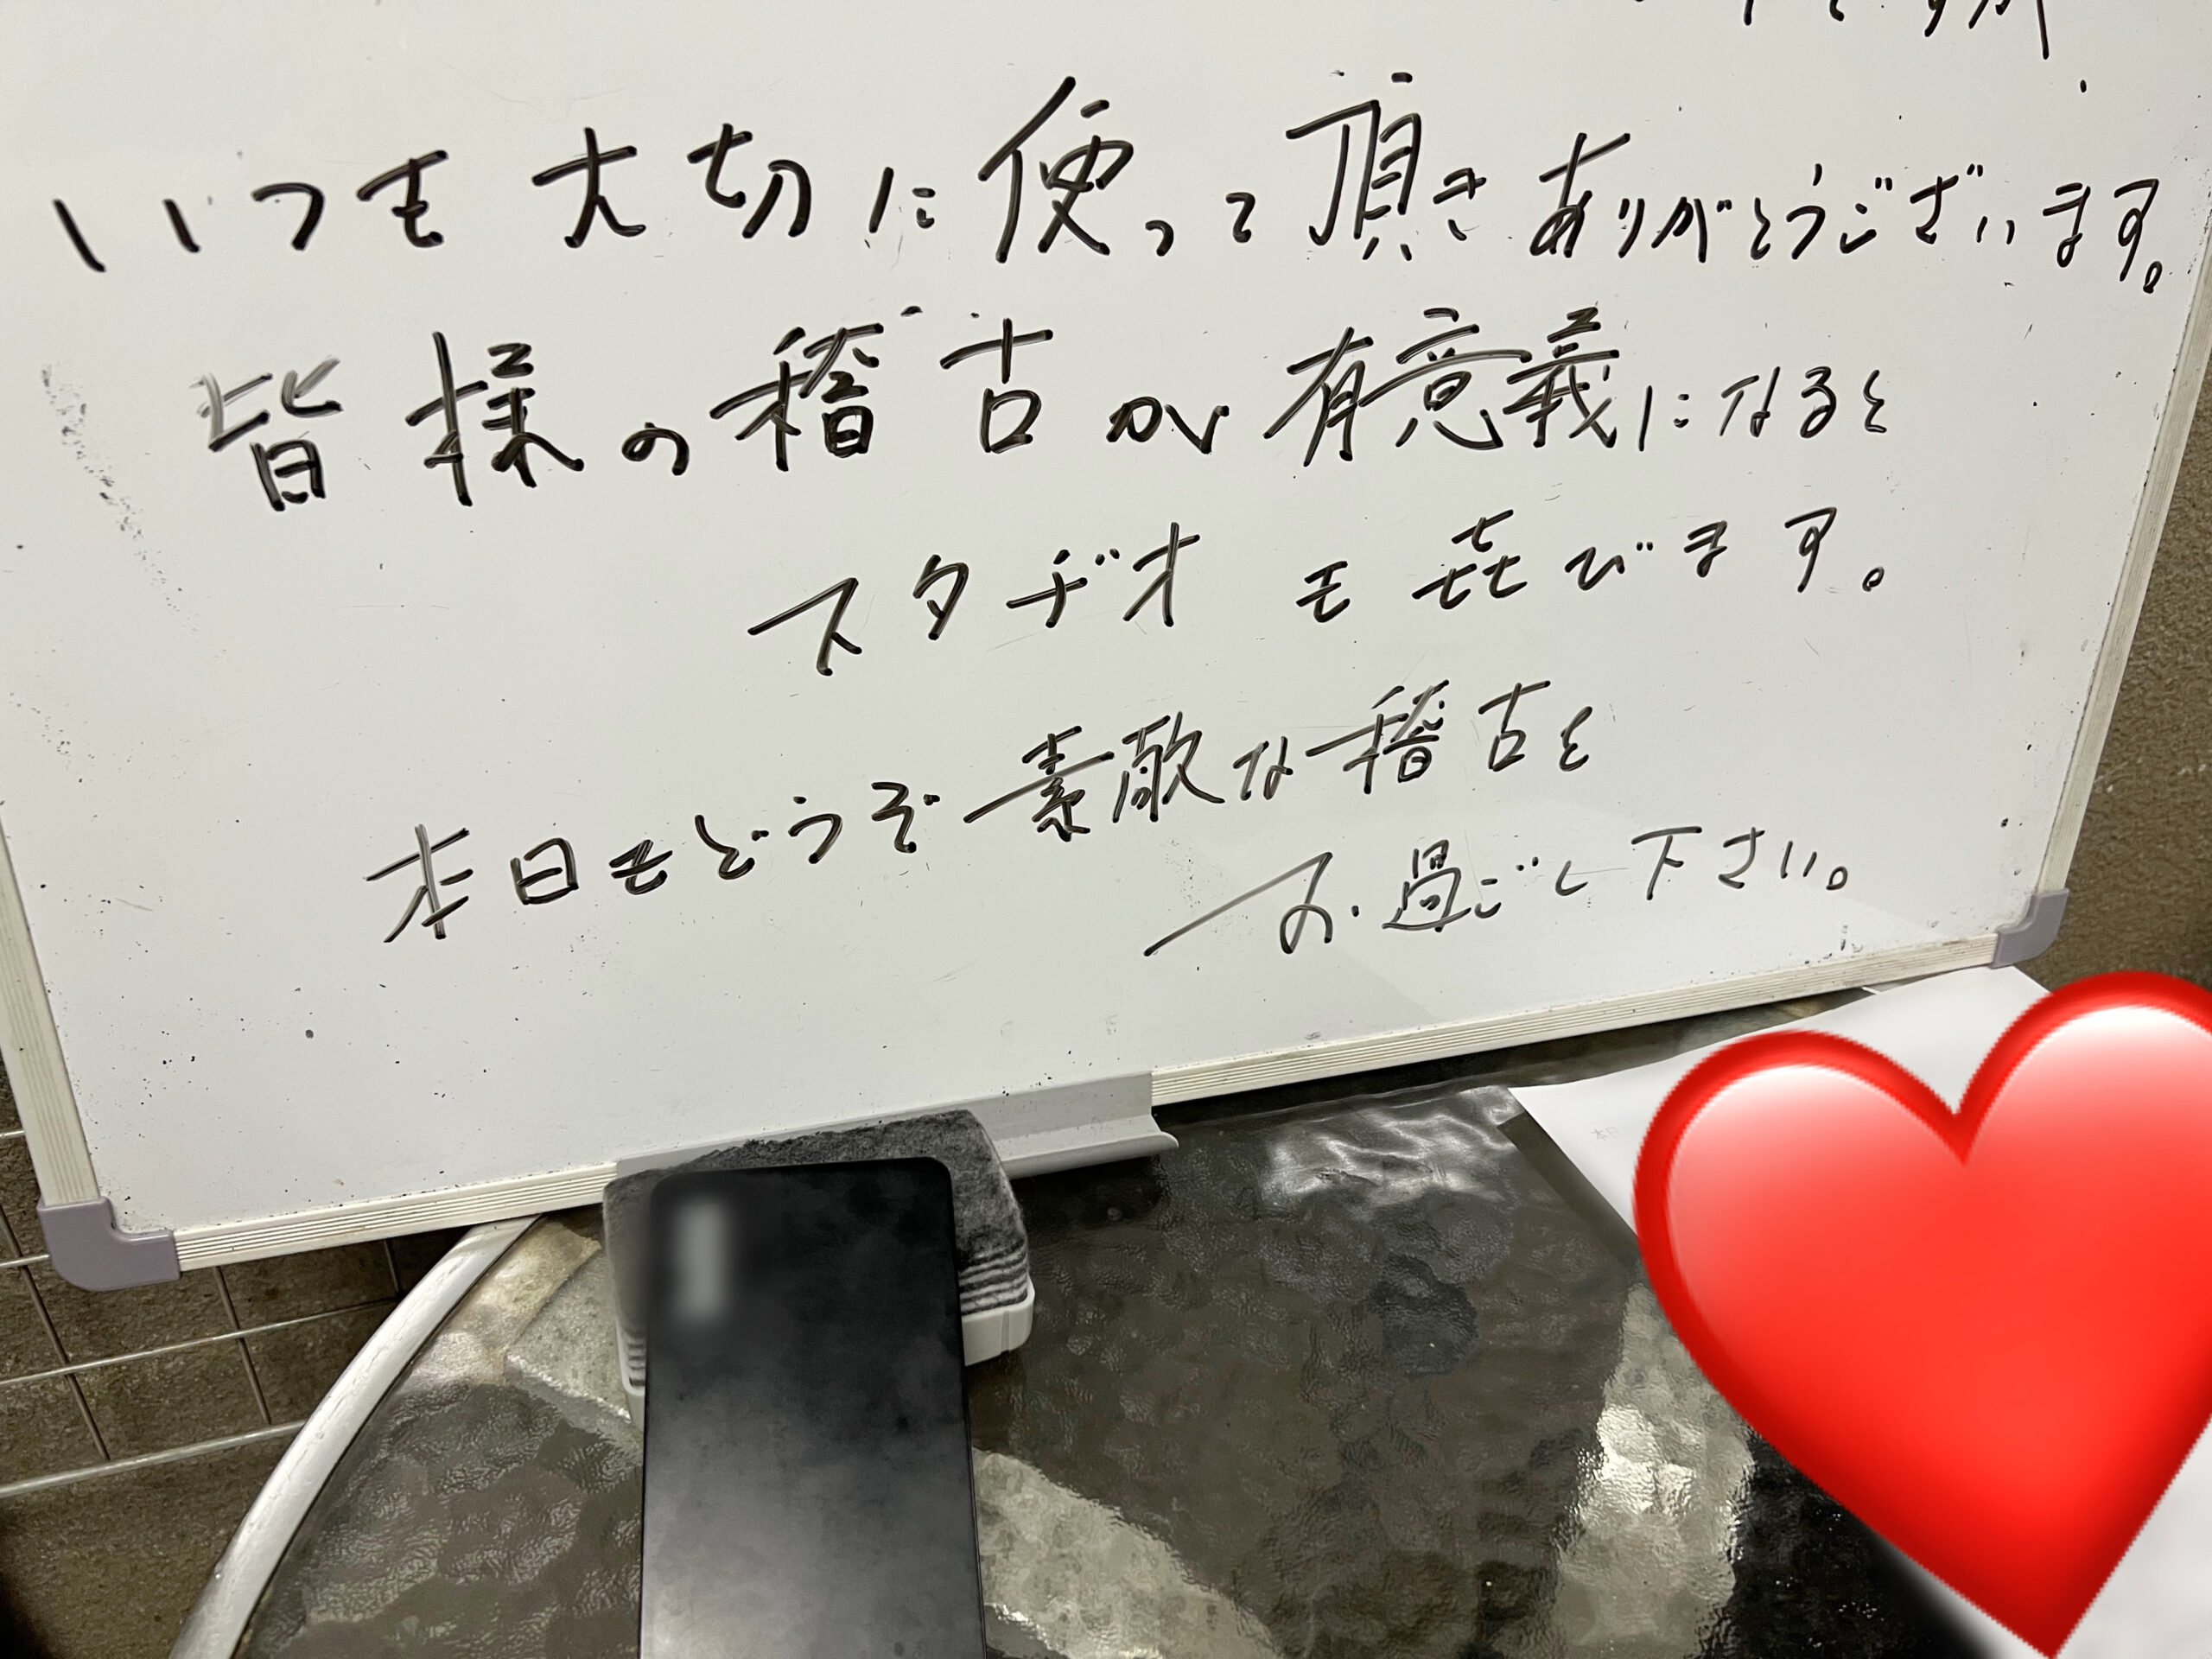 いつも大切に使って頂きありがとうございます。
皆様の稽古が有意義になると
スタヂオも㐂びます。
本日もどうぞ素敵な稽古を
お過ごし下さい。